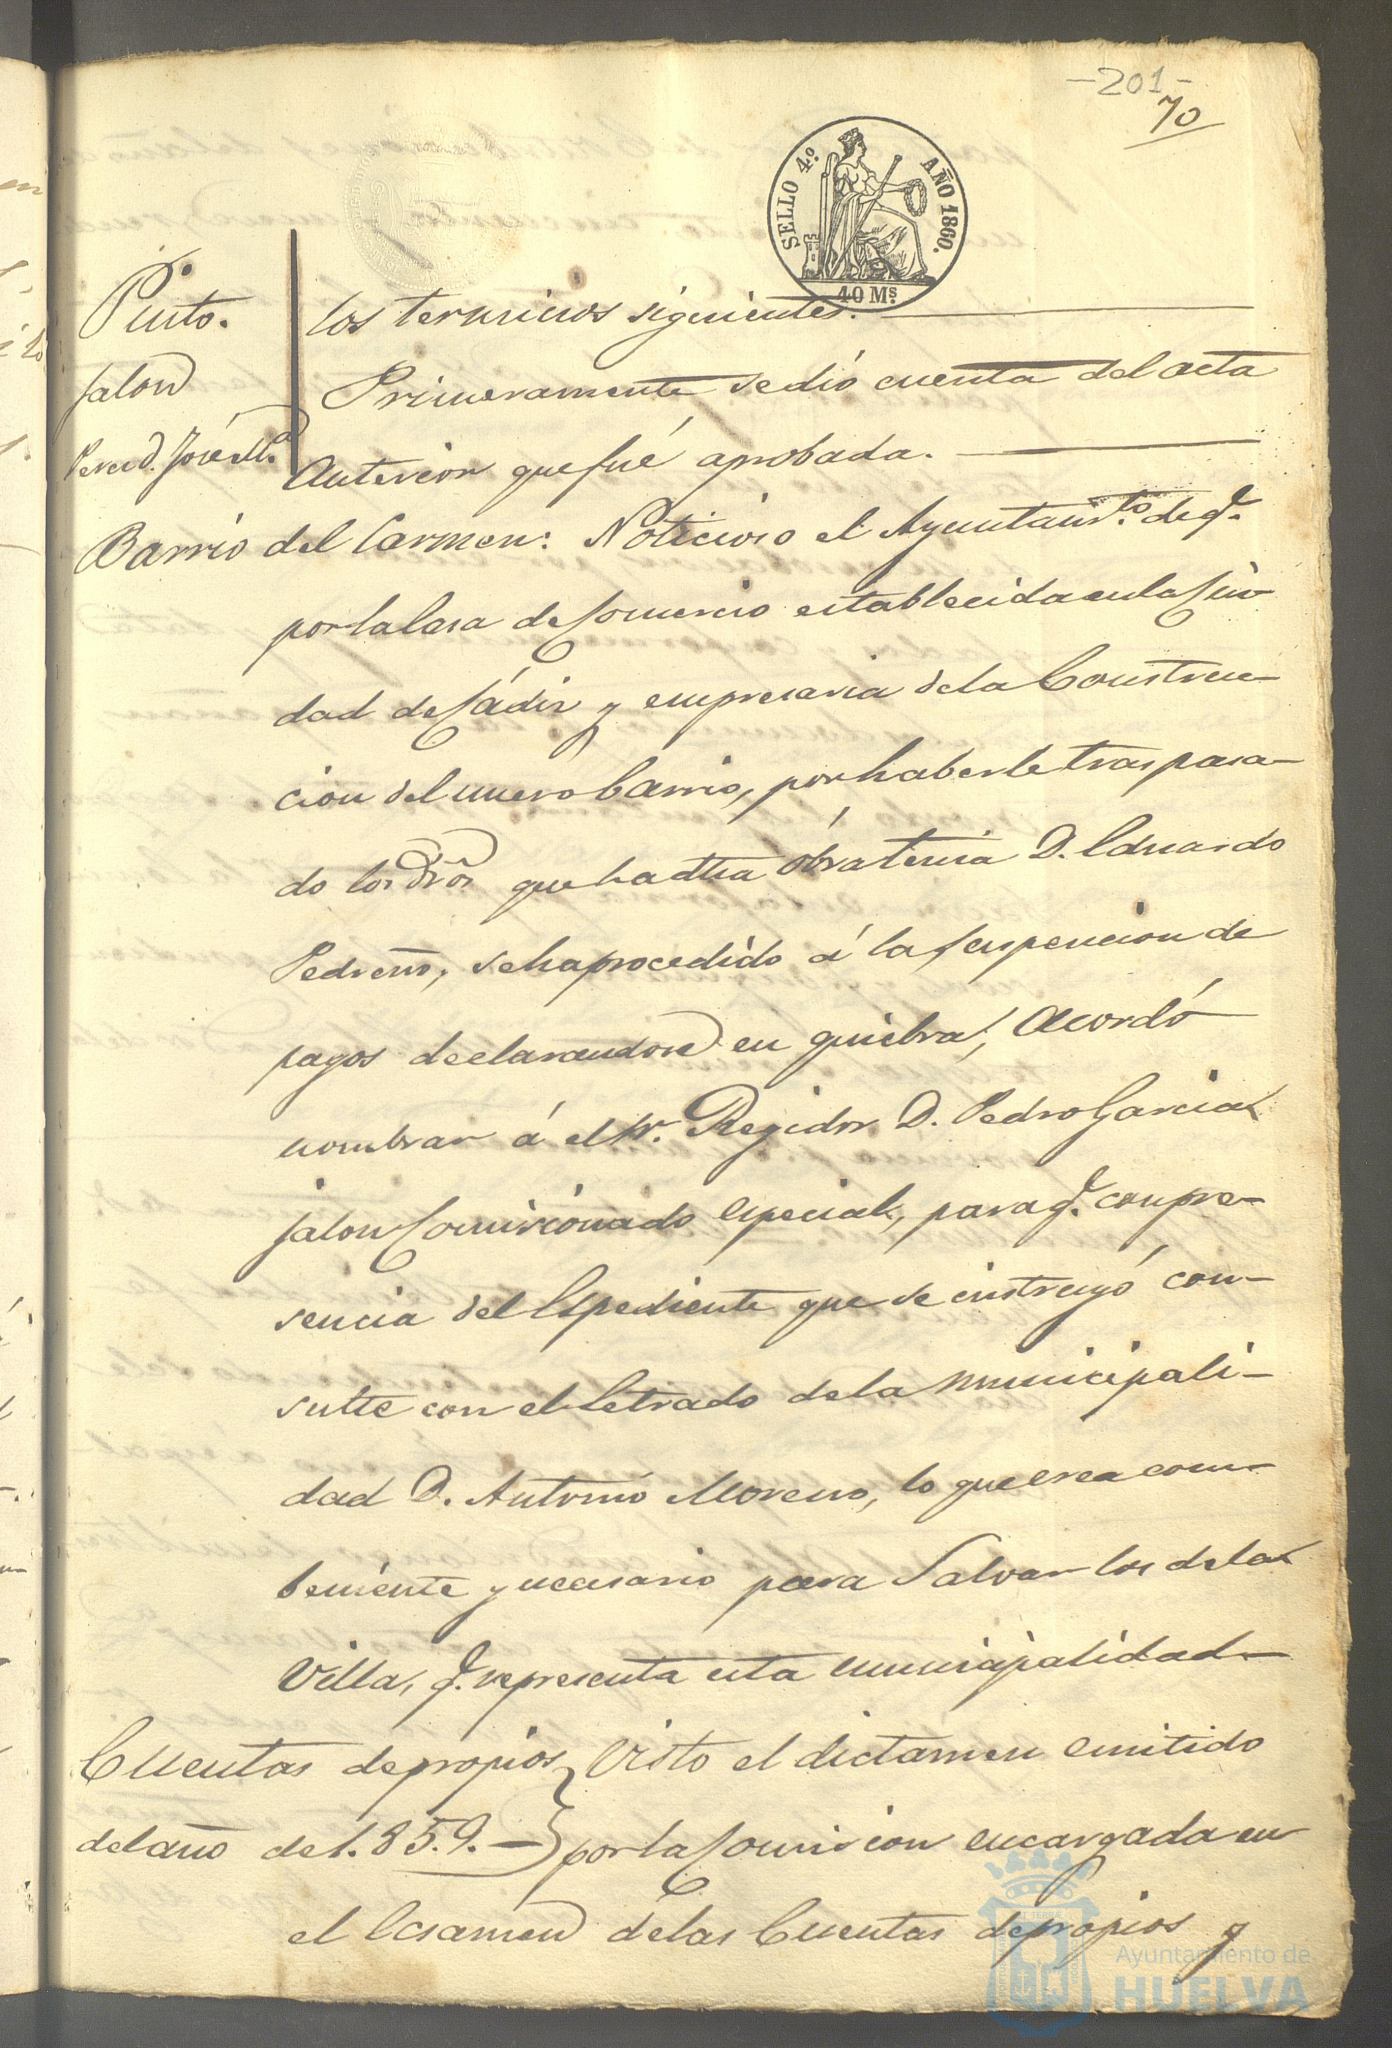 -201-
70
SELLO 4º AÑO 1860.
40 Ms.
Pinto.
Jalon
Perez D. José Mª
los terminos siguientes.
Primeramente se dió cuenta del acta
Anterior que fué aprobada.
Barrio del Carmen: Noticioso el Ayuntamto. de q.
por la Casa de Comercio establecida en la Ciu
dad de Cádiz y empresaria de la Construc-
cion del nuevo barrio, por haberle traspasa-
do los dros que ha dha obra tenia D. Eduardo
Pedreño, se ha procedido á la suspencion de
pagos declarandose en quiebra, Acordó
nombrar á el Sr. Regidor D. Pedro Garcia
Jalon Comisionado especial, para q. con pre-
sencia del Espediente que se instruyó con-
sulte con el Letrado de la municipali-
dad D. Antonio Moreno, lo que crea com-
beniente y necesario para Salvar los de la
Villa, q. representa esta municipalidad
Cuentas de propios Visto el dictamen emitido
del año de 1.859.- por la Comision encargada en
el Ecsamen de las Cuentas de propios y
Ayuntamiento de
HUELVA